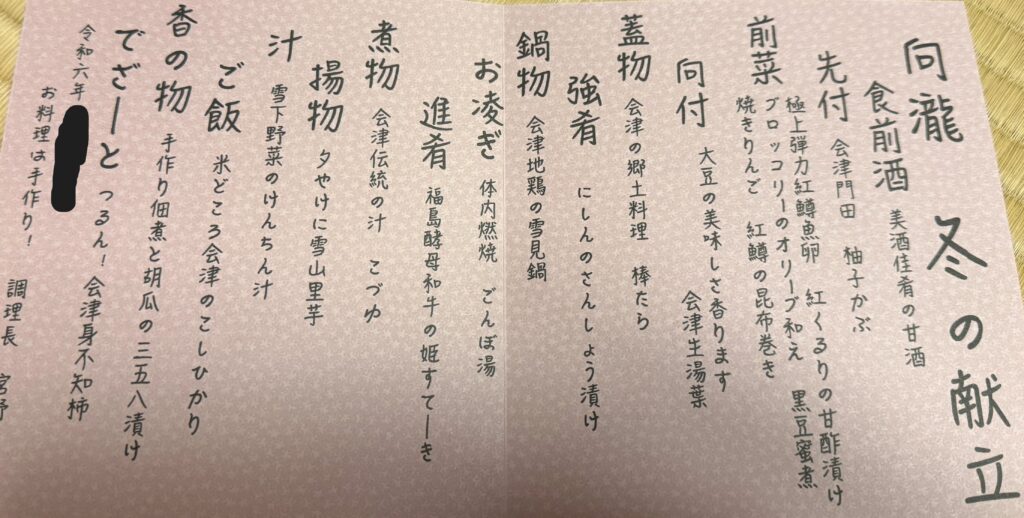 向瀧 冬の献立
食前酒 美酒佳肴の甘酒
先付 会津門田 柚子かぶ
前菜 極上弾力紅鱒魚卵 紅くるりの甘酢漬け
ブロッコリーのオリーブ和え 黒豆蜜煮
焼きりんご 紅鱒の昆布巻き
向付 大豆の美味しさ香ります 会津生湯葉
蓋物 会津の郷土料理 棒たら
強肴 にしんのさんしょう漬け
鍋物 会津地鶏の雪見鍋
お凌ぎ 体内燃焼 ごんぼ湯
進肴 福島酵母和牛の姫すてーき
煮物 会津伝統の汁 こづゆ
揚物 夕やけに雪山里芋
汁 雪下野菜のけんちん汁
ご飯 米どころ会津のこしひかり
香の物 手作り佃煮と胡瓜の三五八漬け
でざーと つるん！会津身不知柿
令和六年
お料理は手作り！ 調理長